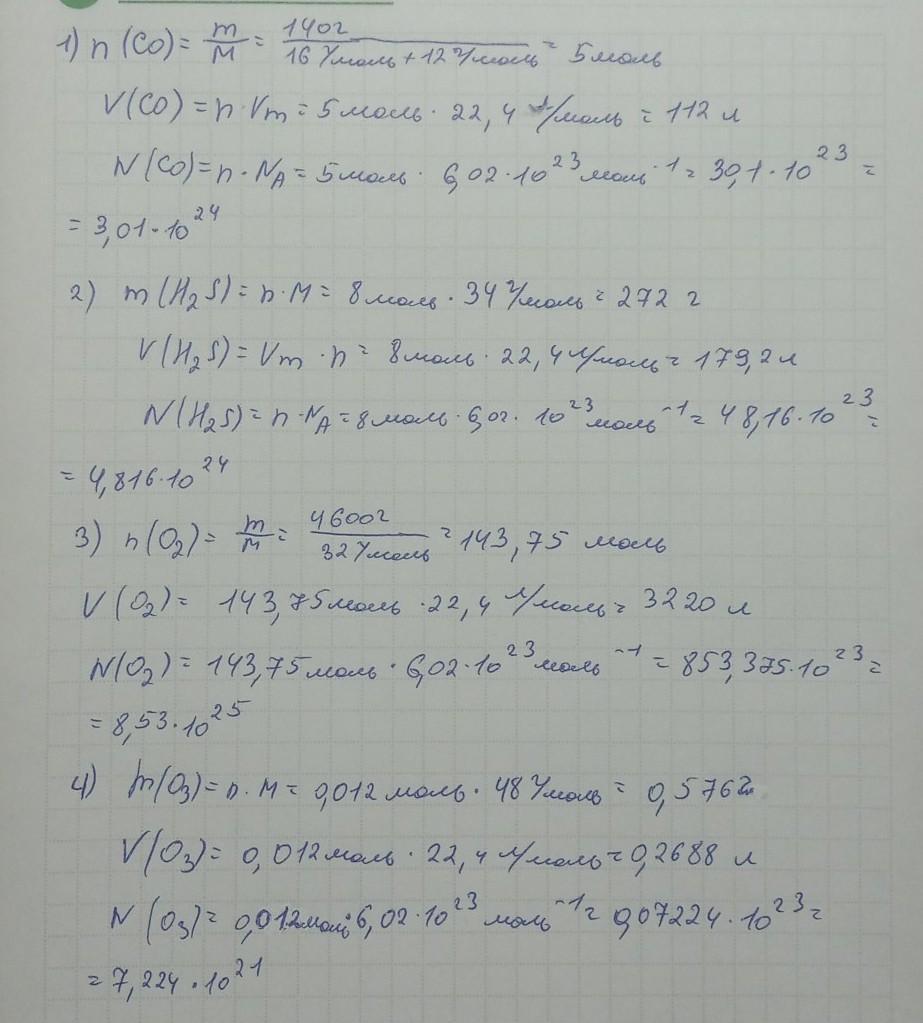 1) n (CO) = m/M = 140г / 16 г/моль + 12 г/моль = 5 моль
V(CO) = n · Vm = 5 моль · 22,4 л/моль = 112 л
N(CO) = n · NA = 5 моль · 6,02 · 10²³ моль⁻¹ = 30,1 · 10²³ =
= 3,01 · 10²⁴
2) m (H₂S) = n · M = 8 моль · 34 г/моль = 272 г
V(H₂S) = Vm · n = 8 моль · 22,4 л/моль = 179,2 л
N(H₂S) = n · NA = 8 моль · 6,02 · 10²³ моль⁻¹ = 48,16 · 10²³ =
= 4,816 · 10²⁴
3) n(O₂) = m/M = 4600г / 32 г/моль = 143,75 моль
V(O₂) = 143,75 моль · 22,4 л/моль = 3220 л
N(O₂) = 143,75 моль · 6,02 · 10²³ моль⁻¹ = 853,375 · 10²³ =
= 8,53 · 10²⁵
4) m(O₃) = n · M = 0,012 моль · 48 г/моль = 0,576г
V(O₃) = 0,012 моль · 22,4 л/моль = 0,2688 л
N (O₃) = 0,012 моль · 6,02 · 10²³ моль⁻¹ = 0,07224 · 10²³ =
= 7,224 · 10²¹